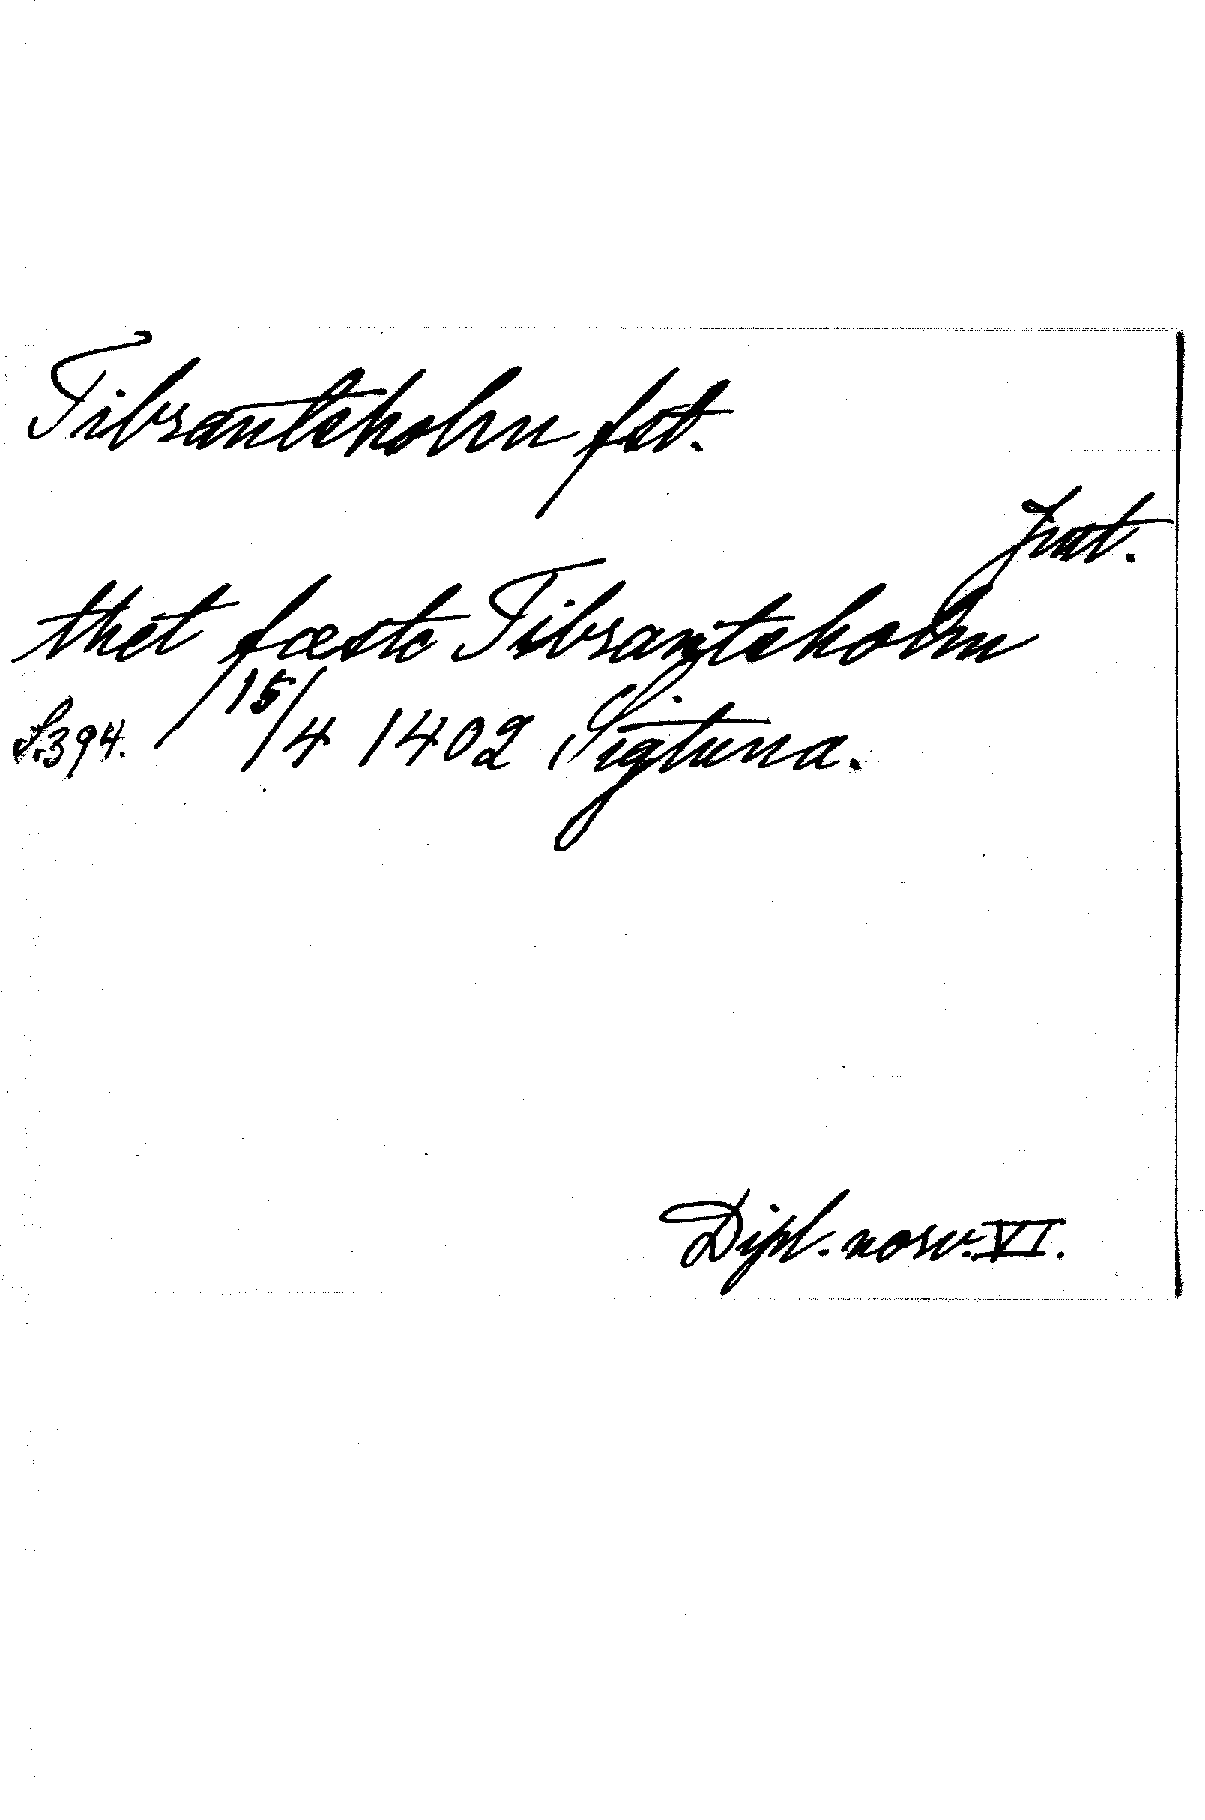 Tibrantsholm fst.
Jrat.
thet fæste Tibrantsholm
S. 394. 15/4 1402 Sigtuna.
Dipl. norv. VI.